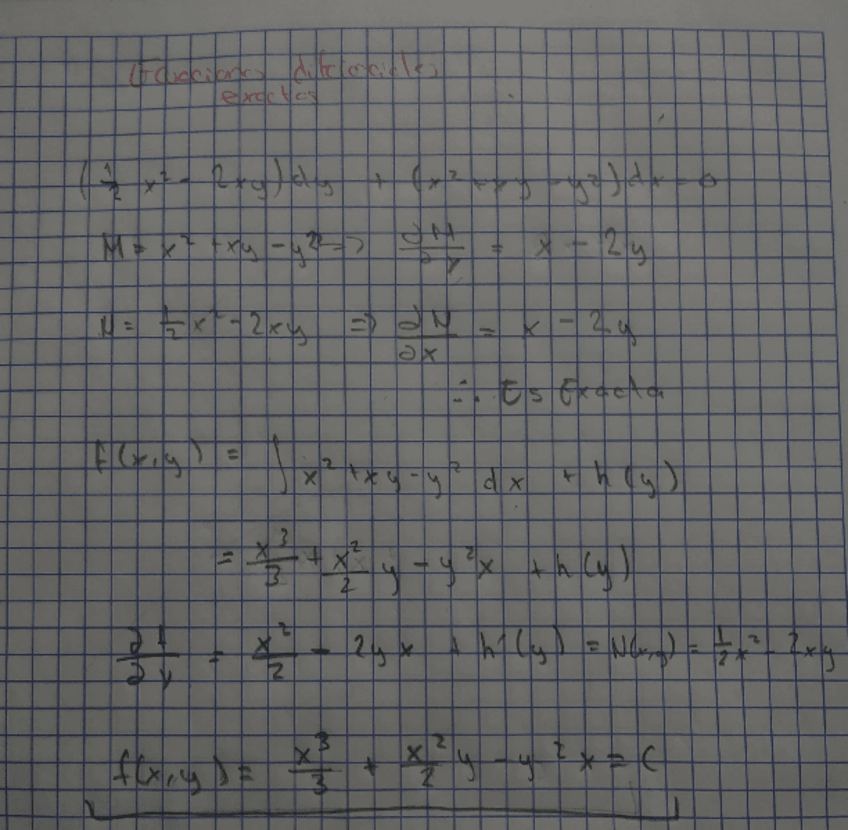 Ecuaciones diferenciales
exactas
(1/2 x² - 2xy)dy + (x² + xy - y²)dx = 0
M = x² + xy - y² => ∂M/∂y = x - 2y
N = 1/2 x² - 2xy => ∂N/∂x = x - 2y
∴ Es Exacta
f(x,y) = ∫ x² + xy - y² dx + h(y)
= x³/3 + x²/2 y - y²x + h(y)
∂f/∂y = x²/2 - 2yx + h'(y) = N(x,y) = 1/2 x² - 2xy
f(x,y) = x³/3 + x²/2 y - y²x = C